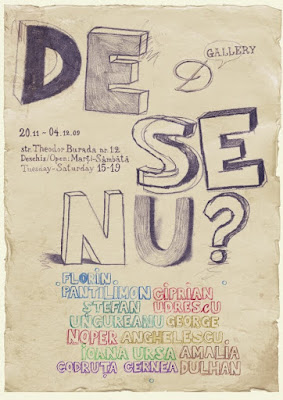 DE
D GALLERY
20.11 - 04.12.09
SE
str. Theodor Burada nr. 12
Deschis/Open: Marți-Sâmbătă
Tuesday-Saturday 15-19
NU?
FLORIN
PANTILIMON CIPRIAN
ȘTEFAN UDRESCU
UNGUREANU GEORGE
NOPER ANGHELESCU
IOANA URSA AMALIA
CODRUȚA CERNEA DULHAN